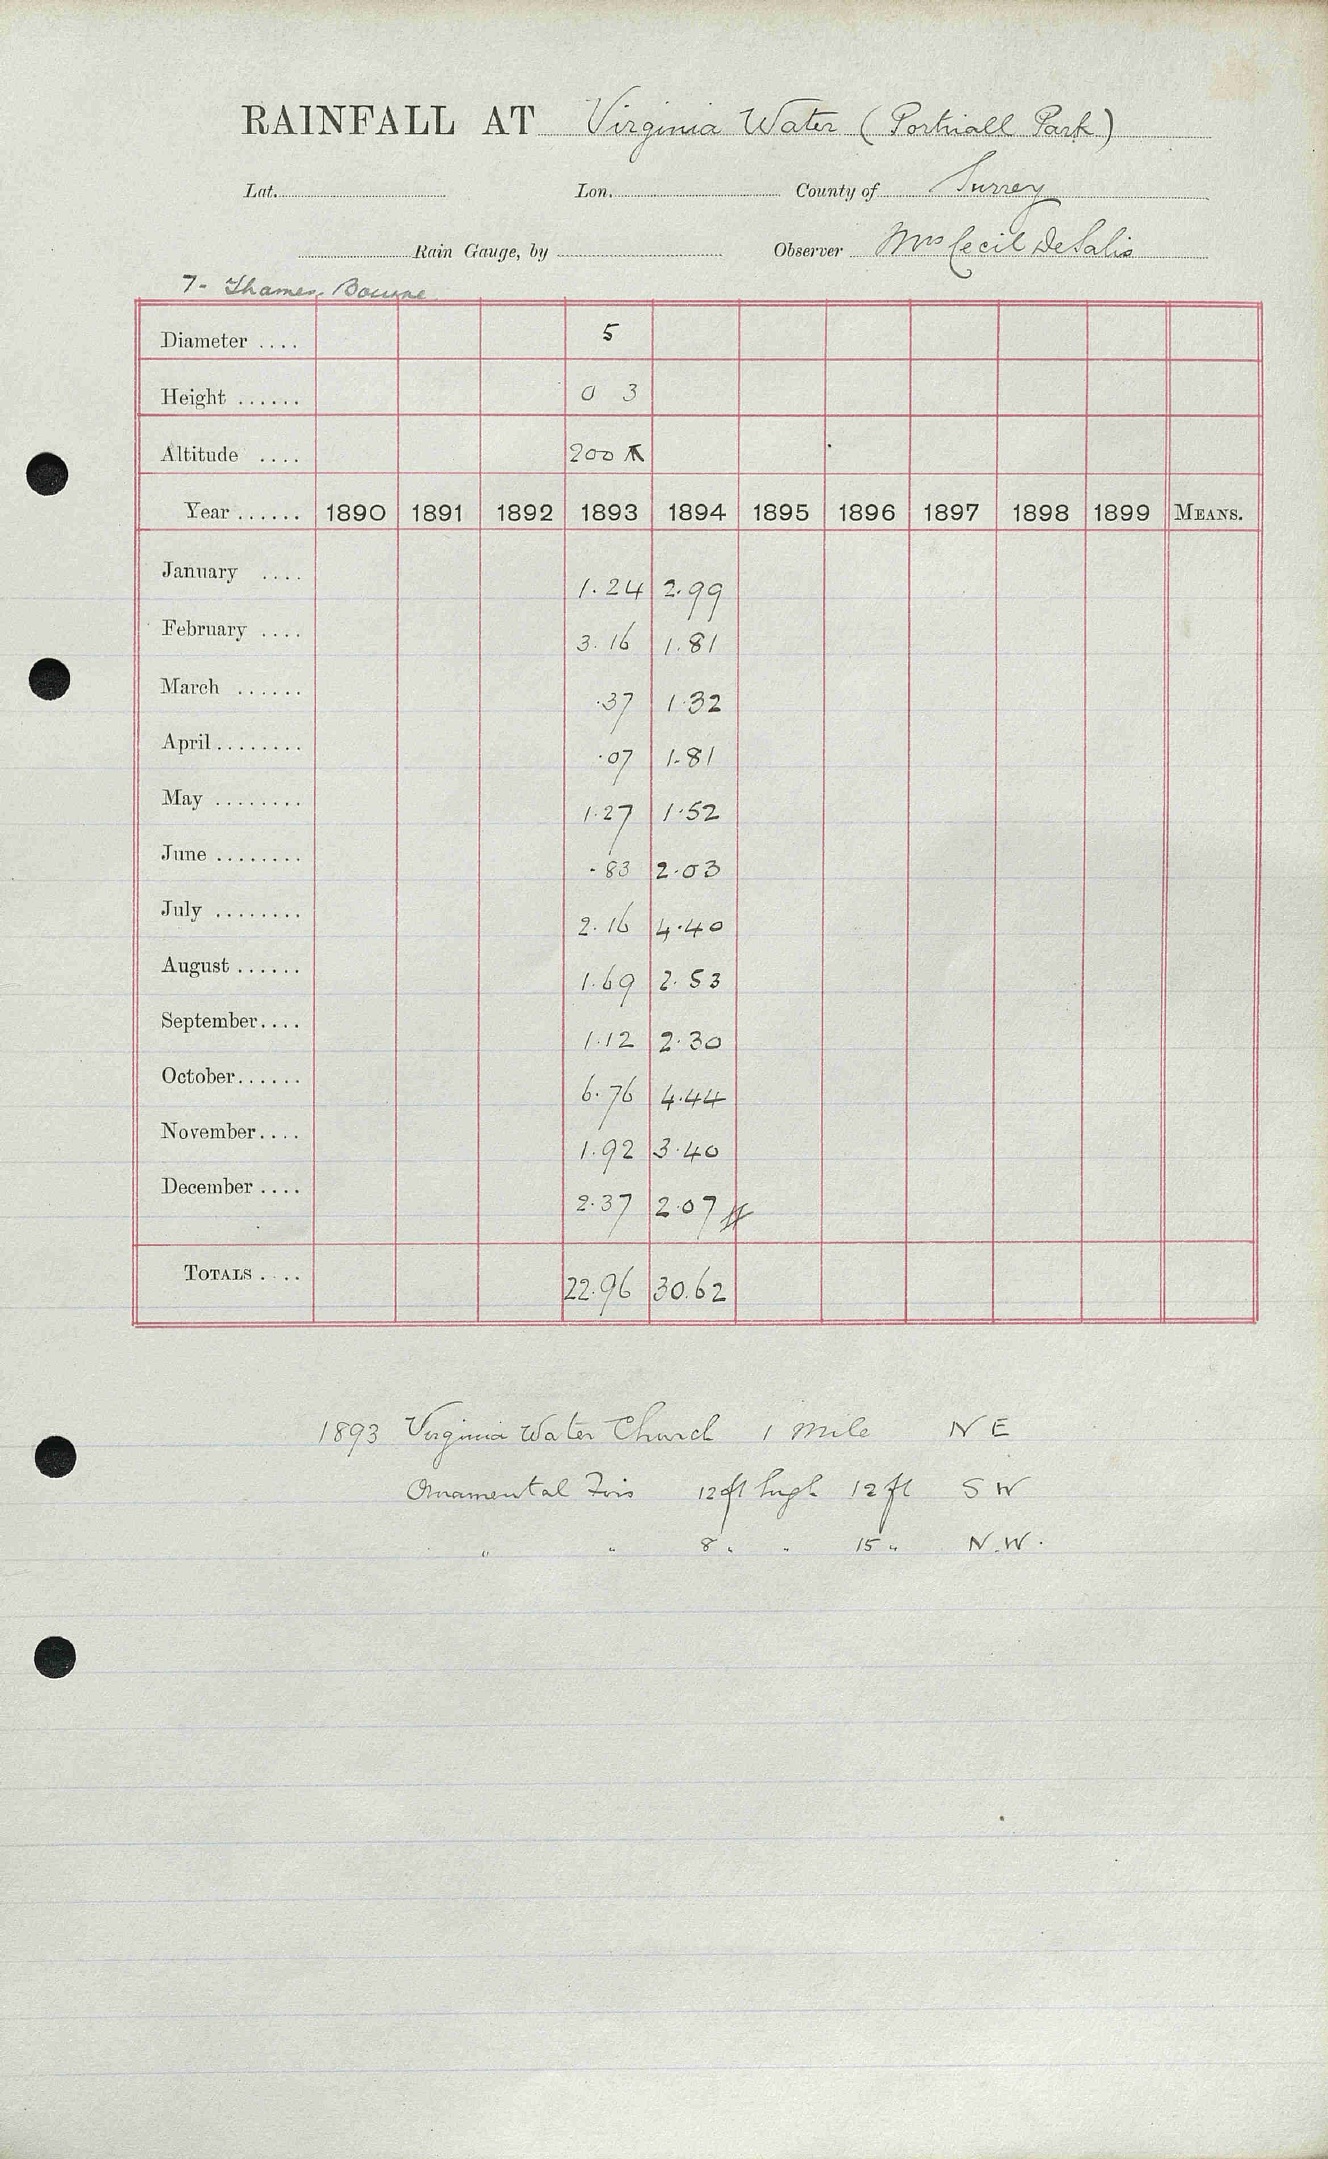 RAINFALL AT Virginia Water (Portnall Park)
Lat. Lon. County of Surrey
Rain Gauge, by Observer Mrs Cecil De Salis
7- Thames, Bourne
Diameter .... 5
Height ...... 0 3
Altitude .... 200
Year ...... 1890 1891 1892 1893 1894 1895 1896 1897 1898 1899 MEANS.
January .... 1.24 2.99
February .... 3.16 1.81
March ...... .37 1.32
April ........ .07 1.81
May ........ 1.27 1.52
June ........ .83 2.03
July ........ 2.16 4.40
August ...... 1.69 2.53
September.... 1.12 2.30
October...... 6.76 4.44
November.... 1.92 3.40
December .... 2.37 2.07
TOTALS .... 22.96 30.62
1893 Virginia Water Church 1 mile NE
Ornamental Firs 12 ft high 12 ft SW
" " 8 " " 15 " N.W.